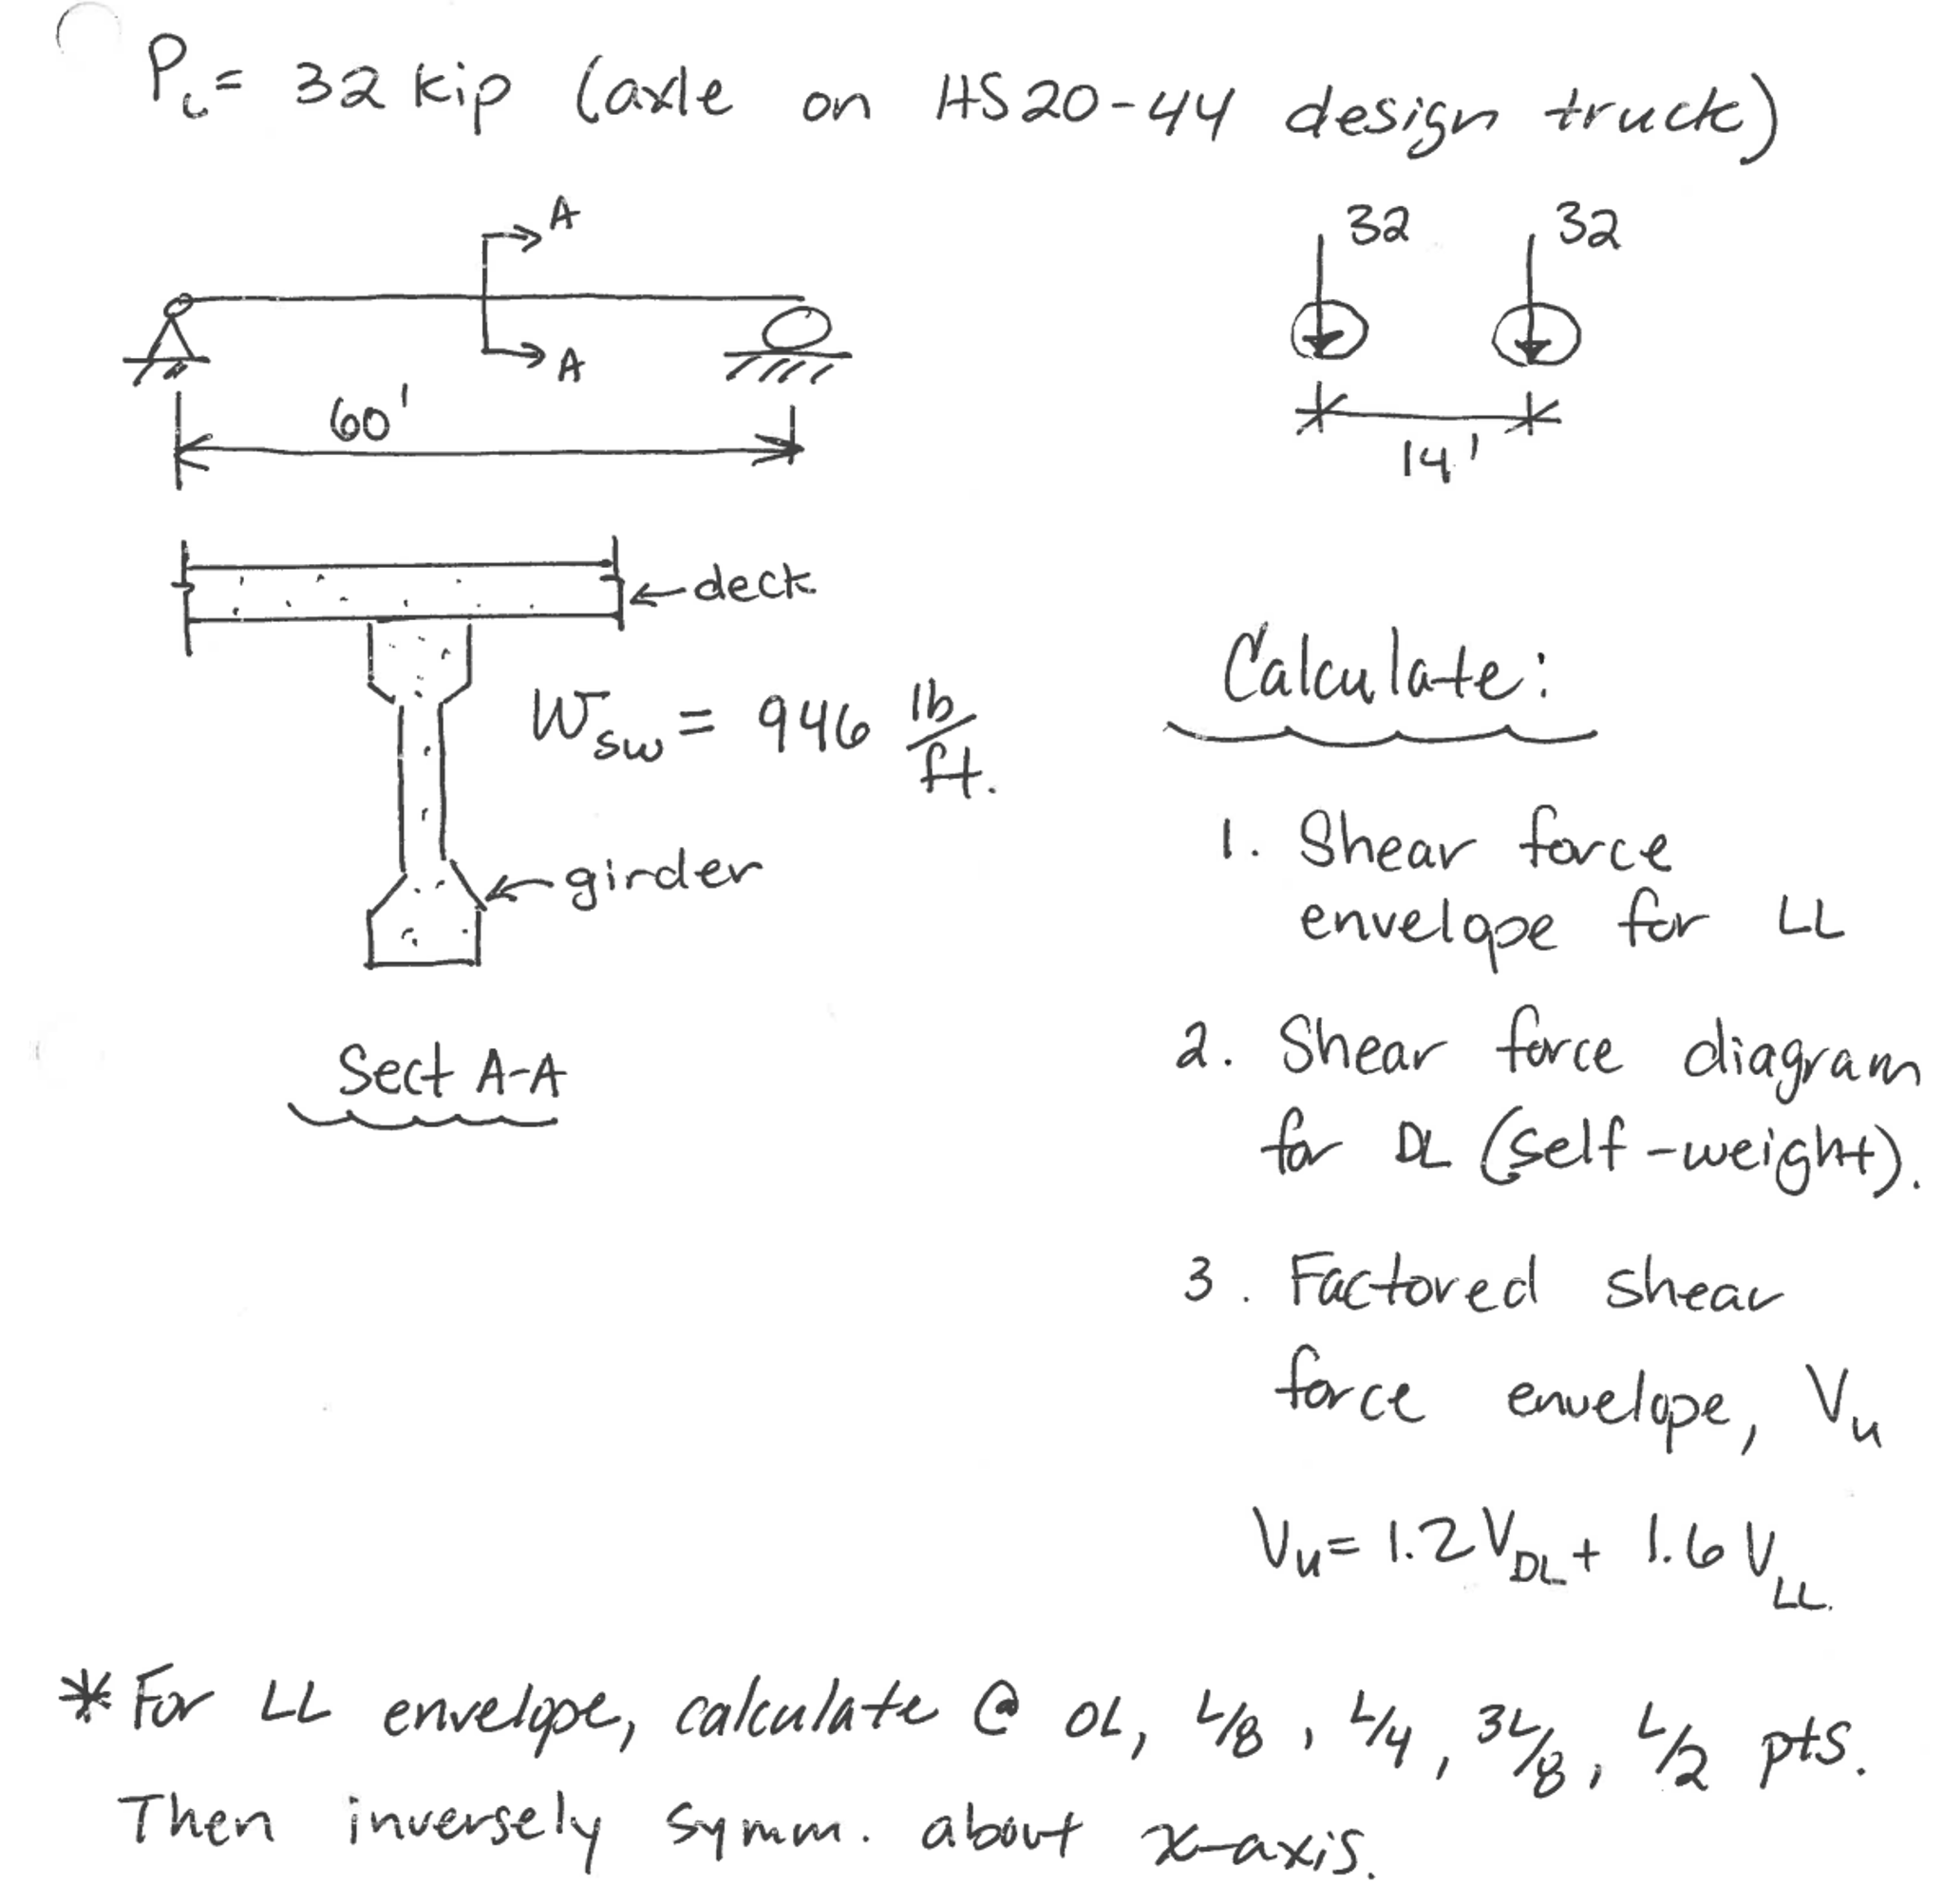 P_L = 32 kip (axle on HS20-44 design truck)
A
A
60'
32 32
14'
deck
W_SW = 946 lb/ft.
girder
Sect A-A
Calculate:
1. Shear force
envelope for LL
2. Shear force diagram
for DL (self-weight).
3. Factored shear
force envelope, V_u
V_u = 1.2 V_DL + 1.6 V_LL.
* For LL envelope, calculate @ 0L, L/8, L/4, 3L/8, L/2 pts.
Then inversely symm. about x-axis.